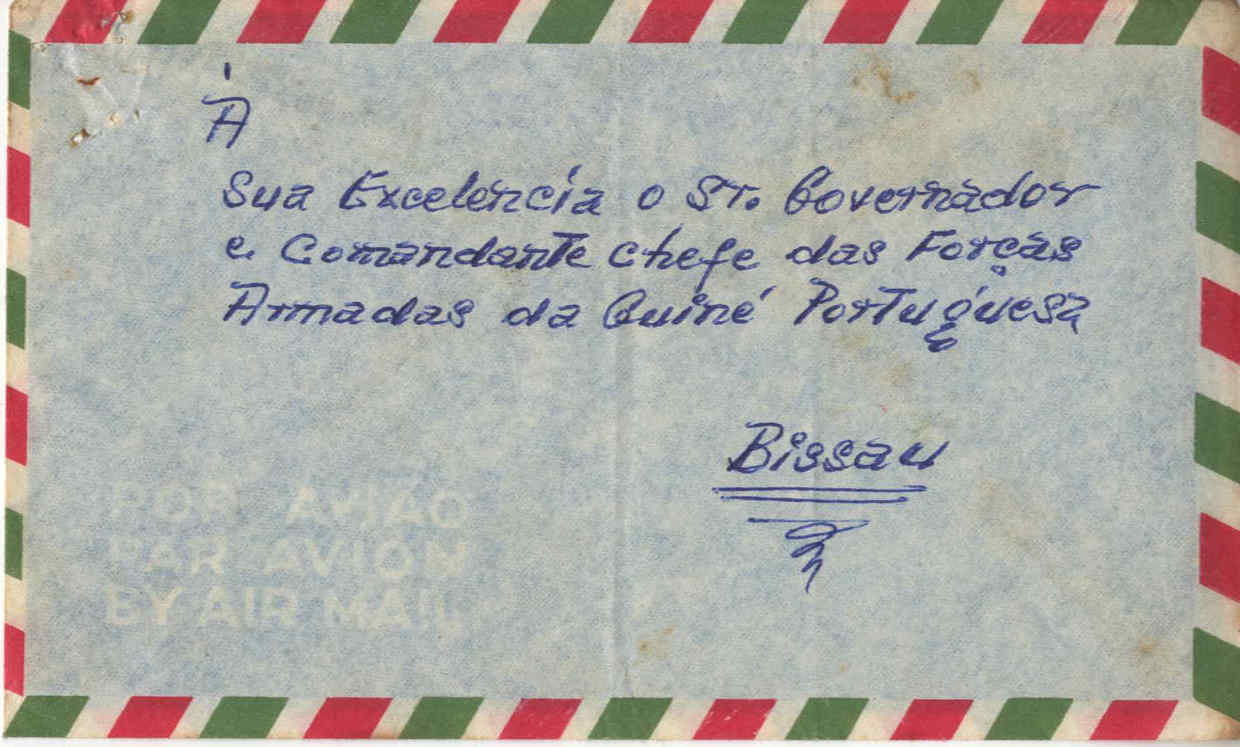 À
Sua Excelência o Sr. Governador
e Comandante chefe das Forças
Armadas da Guiné Portuguesa
Bissau
POR AVIÃO
PAR AVION
BY AIR MAIL